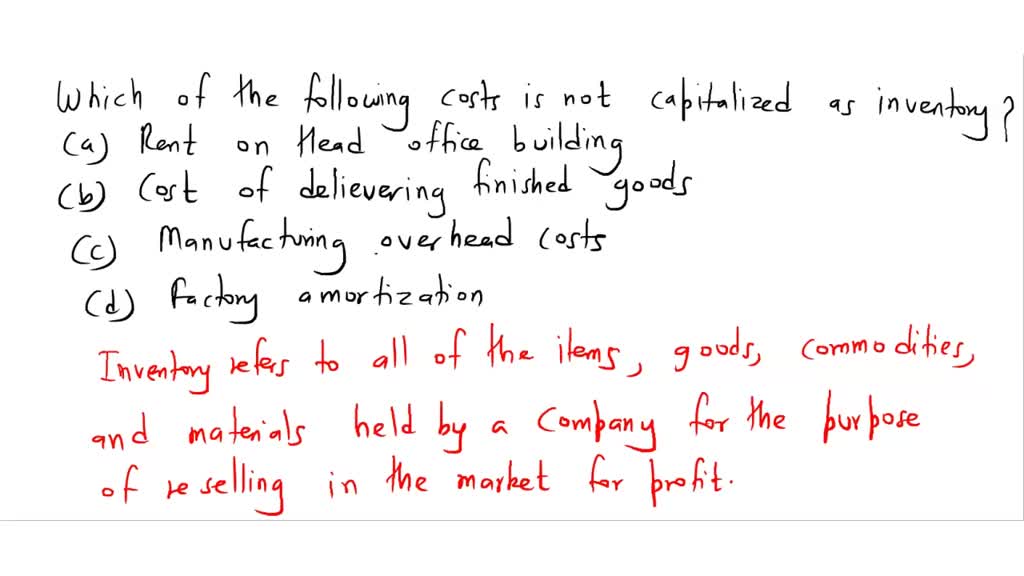 Which of the following costs is not capitalized as inventory?
(a) Rent on Head office building
(b) Cost of delievering finished goods
(c) Manufacturing overhead costs
(d) Factory amortization
Inventory refers to all of the items, goods, commodities,
and materials held by a company for the purpose
of reselling in the market for profit.